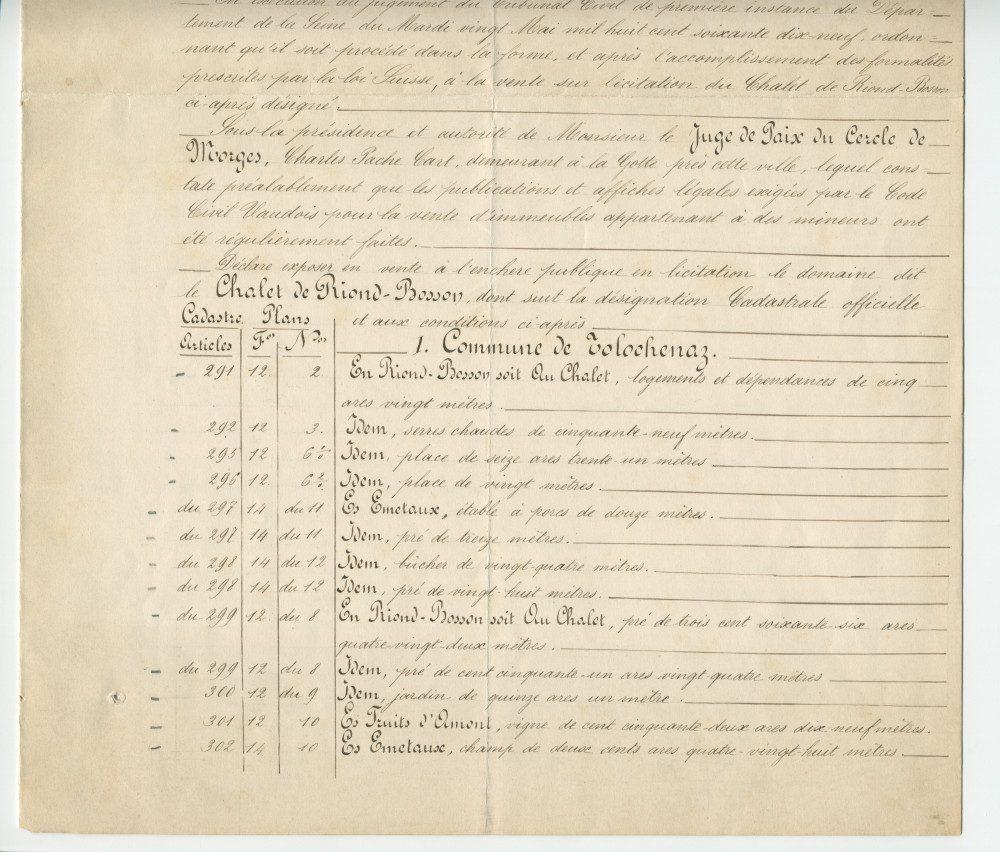 En exécution du jugement du Tribunal Civil de première instance du Dépar=
tement de la Seine du Mardi vingt Mai mil huit cent soixante dix-neuf, ordon=
nant qu'il soit procédé dans la forme, et après l'accomplissement des formalités
prescrites par la loi Suisse, à la vente sur licitation du Chalet de Riond-Bosson
ci-après désigné.
Sous la présidence et autorité de Monsieur le Juge de Paix du Cercle de
Morges, Charles Pache Cart, demeurant à la Gotte près cette ville, lequel cons=
tate préalablement que les publications et affiches légales exigées par le Code
Civil Vaudois pour la vente d'immeubles appartenant à des mineurs ont
été régulièrement faites.
Déclare exposer en vente à l'enchère publique en licitation le domaine dit
le Chalet de Riond-Bosson, dont suit la désignation Cadastrale officielle
Cadastre Plans et aux conditions ci-après
Articles Fos Nos 1. Commune de Tolochenaz.
291 12 2 En Riond-Bosson soit Au Chalet, logements et dépendances de cinq
ares vingt mètres.
292 12 3. Idem, serres chaudes de cinquante-neuf mètres.
295 12 6 Idem, place de seize ares trente-un mètres
296 12 6 Idem, place de vingt mètres
du 297 14 du 11 Es Emetaux, étable à porcs de douze mètres.
du 297 14 du 11 Idem, pré de treize mètres.
du 298 14 du 12 Idem, bûcher de vingt-quatre mètres.
du 298 14 du 12 Idem, pré de vingt-huit mètres.
du 299 12 du 8 En Riond-Bosson soit Au Chalet, pré de trois cent soixante-six ares
quatre-vingt-deux mètres.
du 299 12 du 8 Idem, pré de cent cinquante-un ares vingt-quatre mètres
300 12 du 9 Idem, jardin de quinze ares un mètre.
301 12 10 Es Truits d'Amont, vigne de cent cinquante-deux ares dix-neuf mètres.
302 14 10 Es Emetaux, champ de deux cents ares quatre-vingt-huit mètres